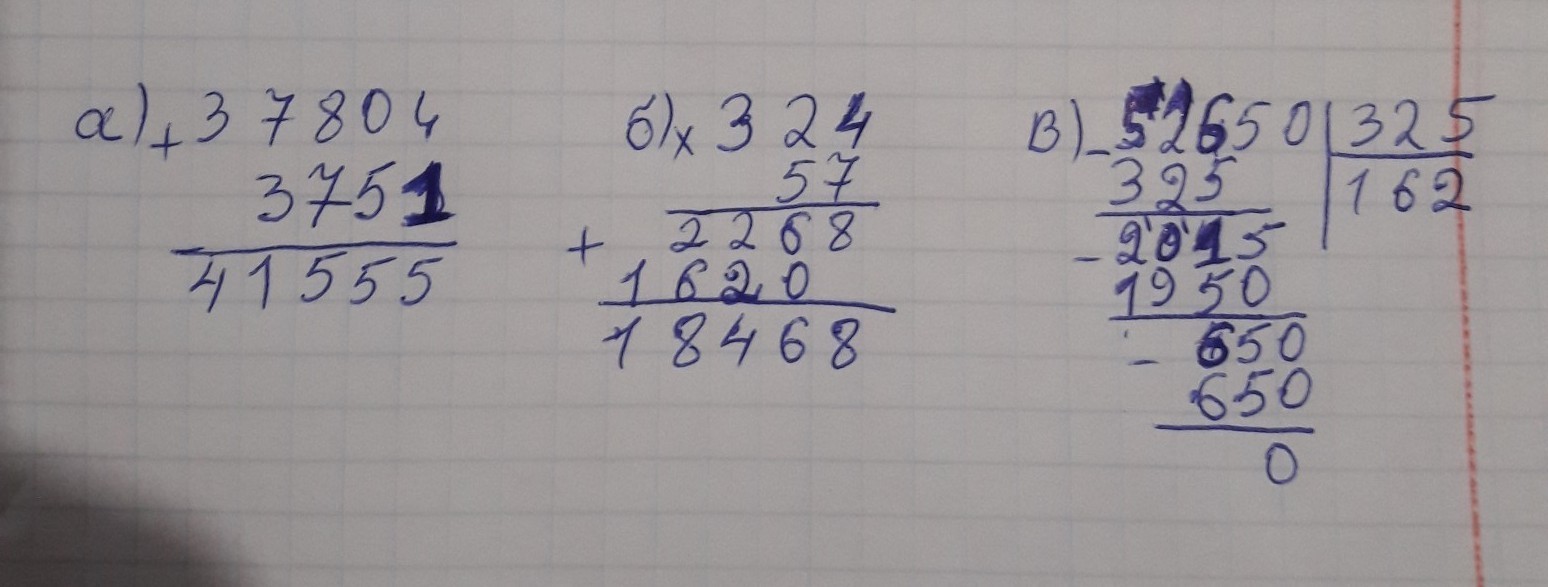 а) + 37804
3751
41555
б) × 324
57
+ 2268
1620
18468
в) - 52650 | 325
325 | 162
- 2015
1950
- 650
650
0